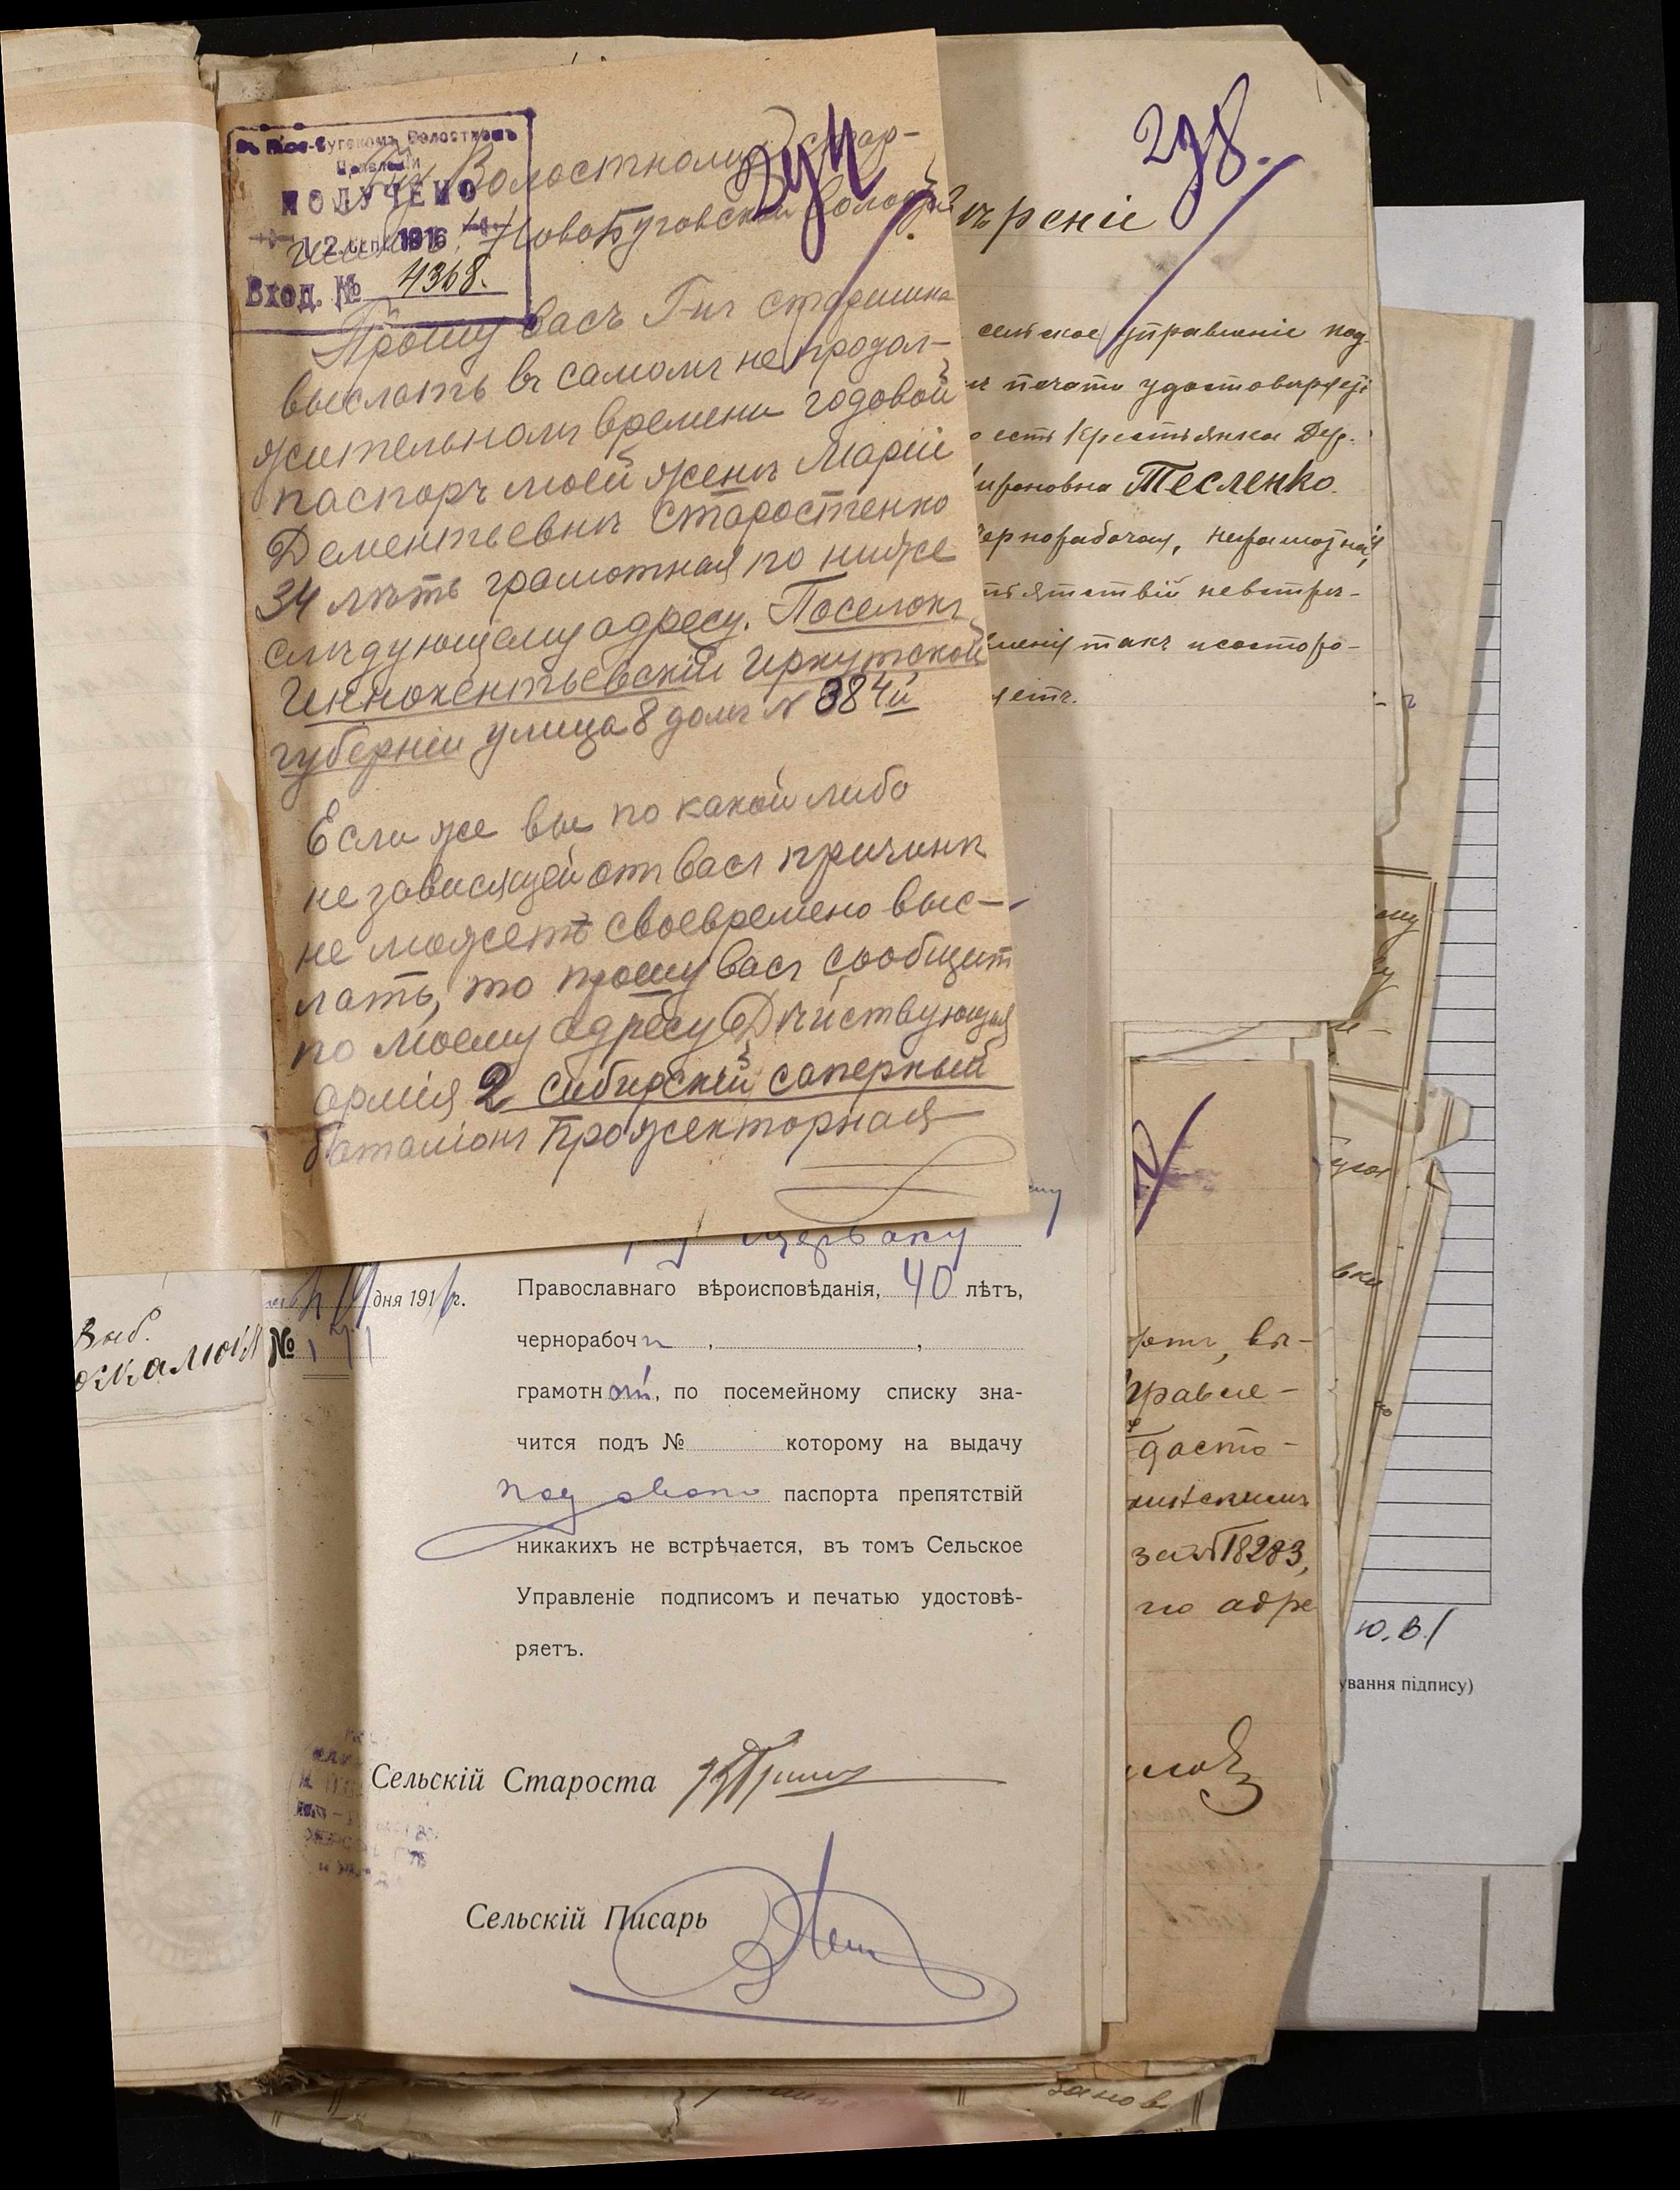 238.
въ Ново-Бугскомъ Волостномъ
Правленіи
ПОЛУЧЕНО
12 1916
Вход. № 4368.
Волостному Стар-
НовоБуговской Волости
Прошу васъ Г-нъ старшина
выслать въ самомъ не продол-
жительномъ времени годовой
паспоръ моей женѣ Маріи
Дементьевнѣ Старостенко
34 лѣтъ грамотная по ниже
слѣдующему адресу. Поселокъ
Иннокентьевскій Иркутской
губерніи улица 8 домъ № 384й
Если же вы по какой либо
не зависящей отъ васъ причинѣ
не можетъ своевремено выс-
лать, то прошу васъ сообщит
по моему адресу Дѣйствующая
армія 2 сибирскій саперный
баталіонъ Прожекторная
ѣреніе
сельское управленіе под
печати удостовѣряетъ
есть Крестьянка Дер.
Тесленко.
чернорабочая, неграмотная,
невстрѣ-
такъ и со сторо-
Щербаку
дня 1916 г.
№ 171
Православнаго вѣроисповѣданія, 40 лѣтъ,
чернорабочи , ,
грамотн ой, по посемейному списку зна-
чится подъ № которому на выдачу
годового паспорта препятствій
никакихъ не встрѣчается, въ томъ Сельское
Управленіе подписомъ и печатью удостовѣ-
ряетъ.
Сельскій Староста
Сельскій Писарь
Выб.
вы-
правле-
досто-
за № 18283,
по адре
ю.в.
ування підпису)
занов